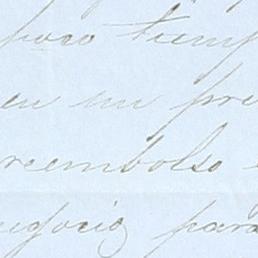 poco tiemp
en un pre
reembolso
negocio para